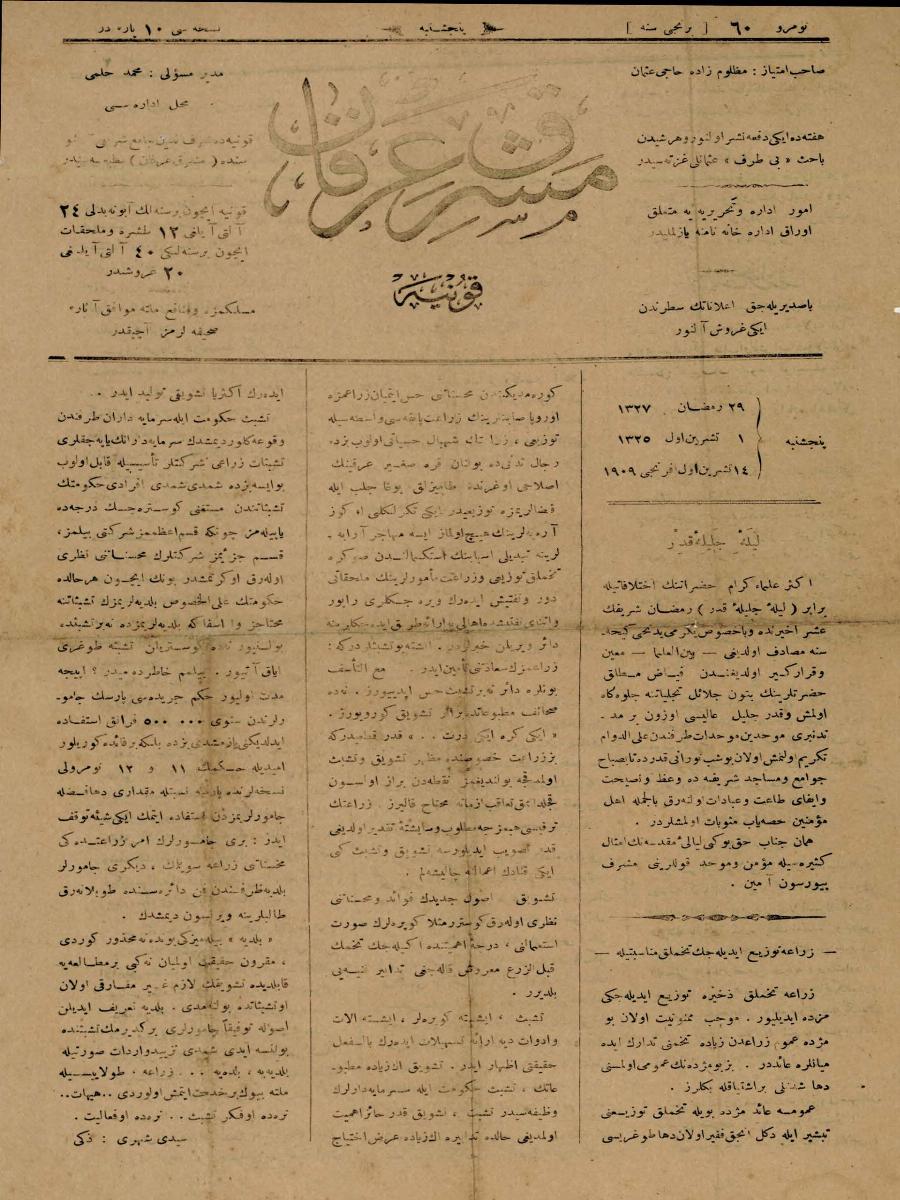 نومرو ٦٠ [ برنجی سنه ] پنجشنبه نسخه سی ١٠ پاره در
صاحب امتیاز : مظلوم زاده حاجی عثمان
هفته ده ایکی دفعه نشر اولنور و هر شیدن
باحث « بی طرف » عثمانلی غزته سیدر
امور اداره و تحریریه یه متعلق
اوراق اداره خانه نامنه یازلملیدر
باصدیریله جق اعلاناتك سطرندن
ایکی غروش آلنور
مشرق عرفان
قونیه
مدیر مسؤلی : محمد حلمی
محل اداره سی
قونیه ده شرف الدین جامع شریفی
سنده ( مشرق عرفان ) مطبعه سیدر
قونیه ایچون برسنه لك آبونه بدلی ٢٤
آلتی آیلغی ١٢ طشره و ملحقات
ایچون برسنه لکی ٤٠ آلتی آیلغی
٢٠ غروشدر
مسلکمزه و منافع ملته موافق آثاره
صحیفه لرمز آچیقدر
پنجشنبه
٢٩ رمضان ١٣٢٧
١ تشرین اول ١٣٢٥
١٤ تشرین اول افرنجی ١٩٠٩
لیلهٔ جلیلهٔ قدر
اکثر علماء کرام حضراتنك اختلافاتیله
برابر ( لیلهٔ جلیلهٔ قدر ) رمضان شریفك
عشر اخیرنده وباخصوص یکرمی یدنجی کیجه
سنه مصادف اولدیغی — بین العلما — معین
وقرارکیر اولدیغندن فیاض مطلق
حضرتلرینك بتون جلائل تجلیاتنه جلوه گاه
اولمش وقدر جلیل عالیسی اوزون بر مد
تدنبری موحدین موحدات طرفندن علی الدوام
تکریم اولنمش اولان بوشب نورانی قدرده تا بصباح
جوامع ومساجد شریفه ده وعظ ونصیحت
وایفای طاعت وعبادات اولنه رق بالجمله اهل
مؤمنین حصه یاب مثوبات اولمشلردر .
همان جناب حق بوکبی لیالیٔ مقدسه نك امثال
کثیره سیله مؤمن وموحد قوللرینی مشرف
بیورسون آمین .
— زراعه توزیع ایدیله جك تخملق مناسبتیله —
زراعه تخملق ذخیره توزیع ایدیله جکی
مژده ایدیلیور . موجب ممنونیت اولان بو
مژده عموم زراعدن زیاده تخمنی تدارك ایده
میانلره عائددر . بز بو مژده نك عمومی اولمسنی
دها شدتلی بر اشتیاقله بکلرز .
عمومه عائد مژده بویله تخملق توزیعنی
تبشیر ایله دکل انجق فقیر اولان دها طوغریسی
کوره مدیکندن محسناتی حس ایتمیان زراعمزه
اوروپا صابانلرینك زراعت بانقه سی واسطه سیله
توزیعی ، زراعتك شهبال حسیاتی اولوب بزده
رجال تدنی ده بولنان قره صغیر عرقینك
اصلاحی اوغرنده طامیزلق بوغا جلب ایله
قضالریمزه توزیعیدر ایکی تکرلکلی اوکوز
آره به لرینك هیچ اولماز ایسه مهاجر آرابه
لرینه تبدیلی اسبابنك استکمالندن صوکره
تخملق توزیعی وزراعت مأمورلرینك ملحقاتی
دور وتفتیش ایدرك ویره جکلری راپور
دائر ویریلن خبرلردر . ایشته بو تشبثلردرکه :
زراعمزك سعادتنی تأمین ایدر . مع التأسف
بونلره دائر نه بر تشبث حس ایدییورز . نه ده
صحائف مطبوعاتده براثر تشویق کورویورز .
« ایکی کره ایکی درت . . » قدر قطعیدرکه
بزراعت خصوصنده مظهر تشویق وتشبث
اولمدقجه بولندیغمز نقطه دن براز اولسون
ترقیسی همزجه مطلوب وسایشتهٔ تقدیر اولدیغی
قدر تصویب ایدیلورسه تشویق وتشبث کبی
ایکی قنادك اعمالنه چالیشه لم .
تشویق اصول جدیدك فوائد ومحسناتنی
نظری اوله رق کوسترر مثلا کوبره لرك صورت
استعمالنی ، درجهٔ اهمیتنده اکیله جك تخمك
قبل الزرع معروض قاله جغی تدابیر فنیه یی
بلدیرر .
تشبث ، ایشته کوبره لر ، ایشته الات
وادوات دیه ارائه تسهیلات ایدرك بالفعل
حقیقتی اظهار ایدر . تشویق اك زیاده مطبو
عاتك ، تشبث حکومت ایله سرمایه دارلرك
وظیفه سیدر تشبث ، تشویق قدر حائز اهمیت
اولمدیغی حالده تدابیره اك زیاده عرض احتیاج
ایده رك اکثریا تشویقی تولید ایدر . .
تشبث حکومت ایله سرمایه داران طرفندن
وقوعه کلور دیمشدك سرمایه دارانك یاپه جقلری
تشبثات زراعی شرکتلر تأسیسیله قابل اولوب
بو ایسه بزده شمدی شمدی افرادی حکومتك
تشبثاتندن مستغنی کوستره جك درجه ده
یاپیله مز چونکه قسم اعظممز شرکتی بیلمز ،
قسم جزئیمز شرکتلرك محسناتنی نظری
اوله رق اوکرنمشدر بونك ایچون هر حالده
حکومتك علی الخصوص بلدیه لریمزك تشبثاتنه
محتاجز وا اسفا که بلدیه لریمزده نه بر تشبثده
بولنیور نه ده کوستریلن تشبثه طوغری
ایاق آتیور . بیلمم خاطرده میدر ؟ اییجه
مدت اولیور حکم جریده سی پارسك جامو
رلرندن سنوی ٥٠٠٠٠٠ فرانق استفاده
ایدلدیکنی یازمشدی بزده بلکه برفائده کوریلور
امیدیله حکمك ١١ و ١٢ نومرولی
نسخه لرنده پارسه نسبتله مقداری دها فضله
جامورلریمزدن استفاده ایتمك ایکی شیئه توقف
ایدر : بری جامورلرك امر زراعتده کی
محسناتنی زراعه سویلمك ، دیکری جامورلر
بلدیه طرفندن فن دائره سنده طوپلانه رق
طالبلرینه ویرلسون دیمشدك .
« بلدیه » بیله میز کی بونده نه محذور کوردی
، مقرون حقیقت اولمیان نه کبی بر مطالعه یه
قاپلدیده تشویقك لازم غیر مفارقی اولان
او تشبثاتده بولنمدی . بلدیه تعریف ایدیلن
اصوله توفیقا جامورلری برکدیرمك تشبثنده
بولنسه ایدی شمدی تزیید واردات صورتیله
بلدیه یه ، بلدیه . . . زراعه ، طولاییسیله
ملته بیوك بر خدمت ایتمش اولوردی .. هیهات ..
نره ده او فکر تشبث . . نره ده او فعالیت .
سیدی شهری : ذکی